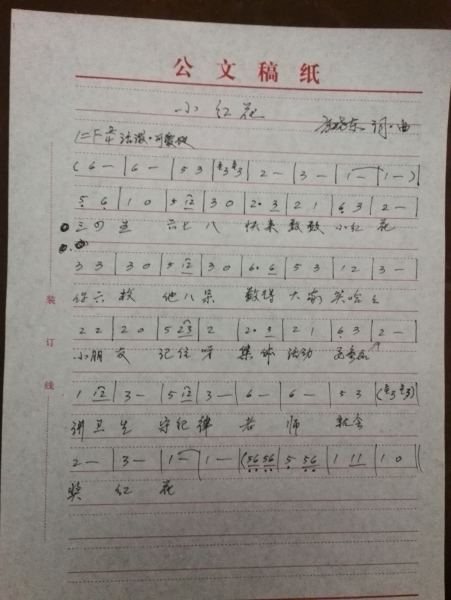 公文稿纸
小红花
词·曲
1=F 2/4 活泼·可爱
(6 — | 6 — | 5 3 | | 2 — | 3 — | 1 — | 1 — )
5 6 | 1 0 | 5 12 | 3 0 | 2· 3 | 2 1 | 6 3 | 2 —
六七八 快来数数小红花
3 3 | 3 0 | 5 12 | 3 0 | 6· 6 | 5 3 | 1 2 | 3 —
你六枝 他八朵 数得大家笑哈
装
2 2 | 2 0 | 5 23 | 2 | 2· 3 | 2 1 | 6 3 | 2 —
订
小朋友 记住呀 集体活动
线
1 12 | 3 — | 5 12 | 3 — | 6 — | 6 — | 5 3 |
讲卫生 守纪律 老师 就会
2 — | 3 — | 1 — | 1 — | (56 56 | 5 56 | 1 11 | 1 0 |
奖红花